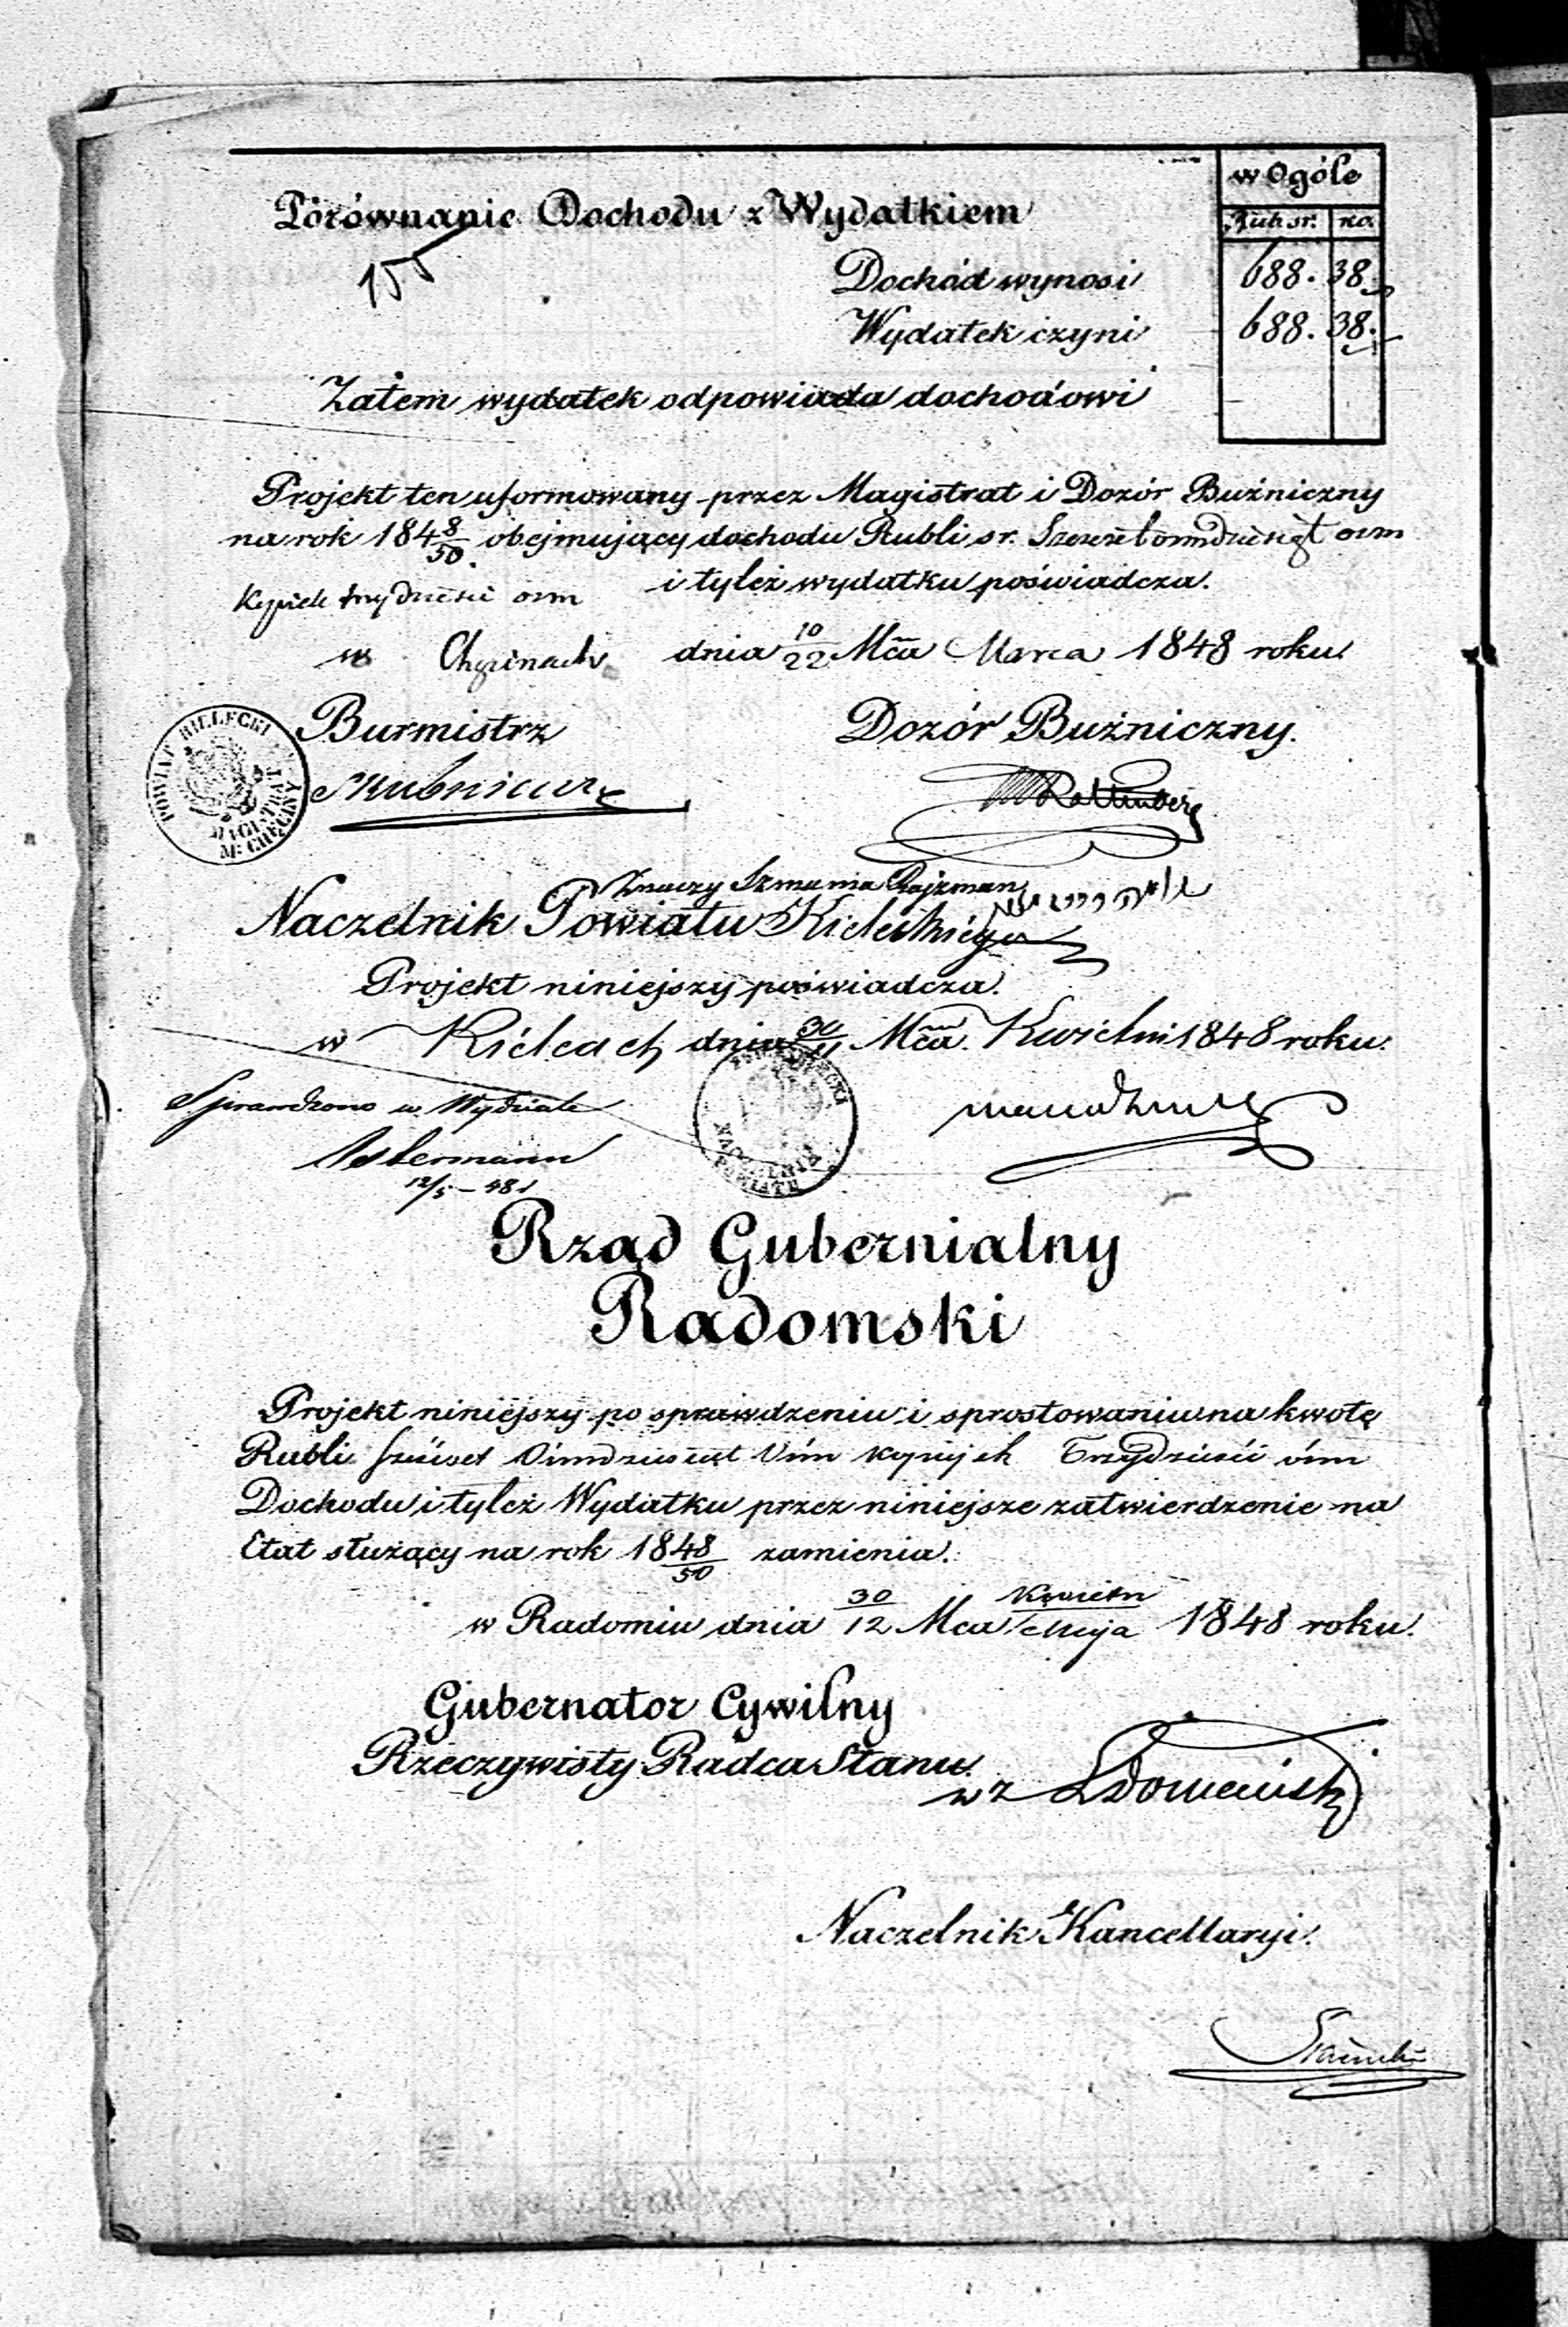 w Ogóle
Porównanie Dochodu z Wydatkiem
Rub. sr. ko.
155
Dochód wynosi 688. 38.
Wydatek czyni 688. 38.
Zatem wydatek odpowiada dochodowi
Projekt ten uformowany przez Magistrat i Dozór Bużniczny
na rok 184 8/50. obejmujący dochodu Rubli sr. Sześćset ośmdziesiąt osm
Kopiek trzydzieści osm i tyleż wydatku poświadcza.
w Chęcinach dnia 10/22 Mca Marca 1848 roku.
Burmistrz Dozór Bużniczny.
POWIAT KIELECKI
MAGISTRAT
M: CHĘCINY
Rottenberg
Znaczy Szmunia Rajzman
Naczelnik Powiatu Kieleckiego
Projekt niniejszy poświadcza.
w Kielcach dnia 30/11 Mca Kwietni 1848 roku.
Sprawdzono w Wydziale
NACZELNIK
POWIATU
12/5 – 48
Rząd Gubernialny
Radomski
Projekt niniejszy po sprawdzeniu i sprostowaniu na kwotę
Rubli Sześćset Ośmdziesiąt Ośm kopijek Trzydzieści ośm
Dochodu i tyleż Wydatku przez niniejsze zatwierdzenie na
Etat służący na rok 1848/50 zamienia.
w Radomiu dnia 30/12 Mca Kwietn/Maja 1848 roku.
Gubernator Cywilny
Rzeczywisty Radca Stanu.
wz
Naczelnik Kancellaryi.